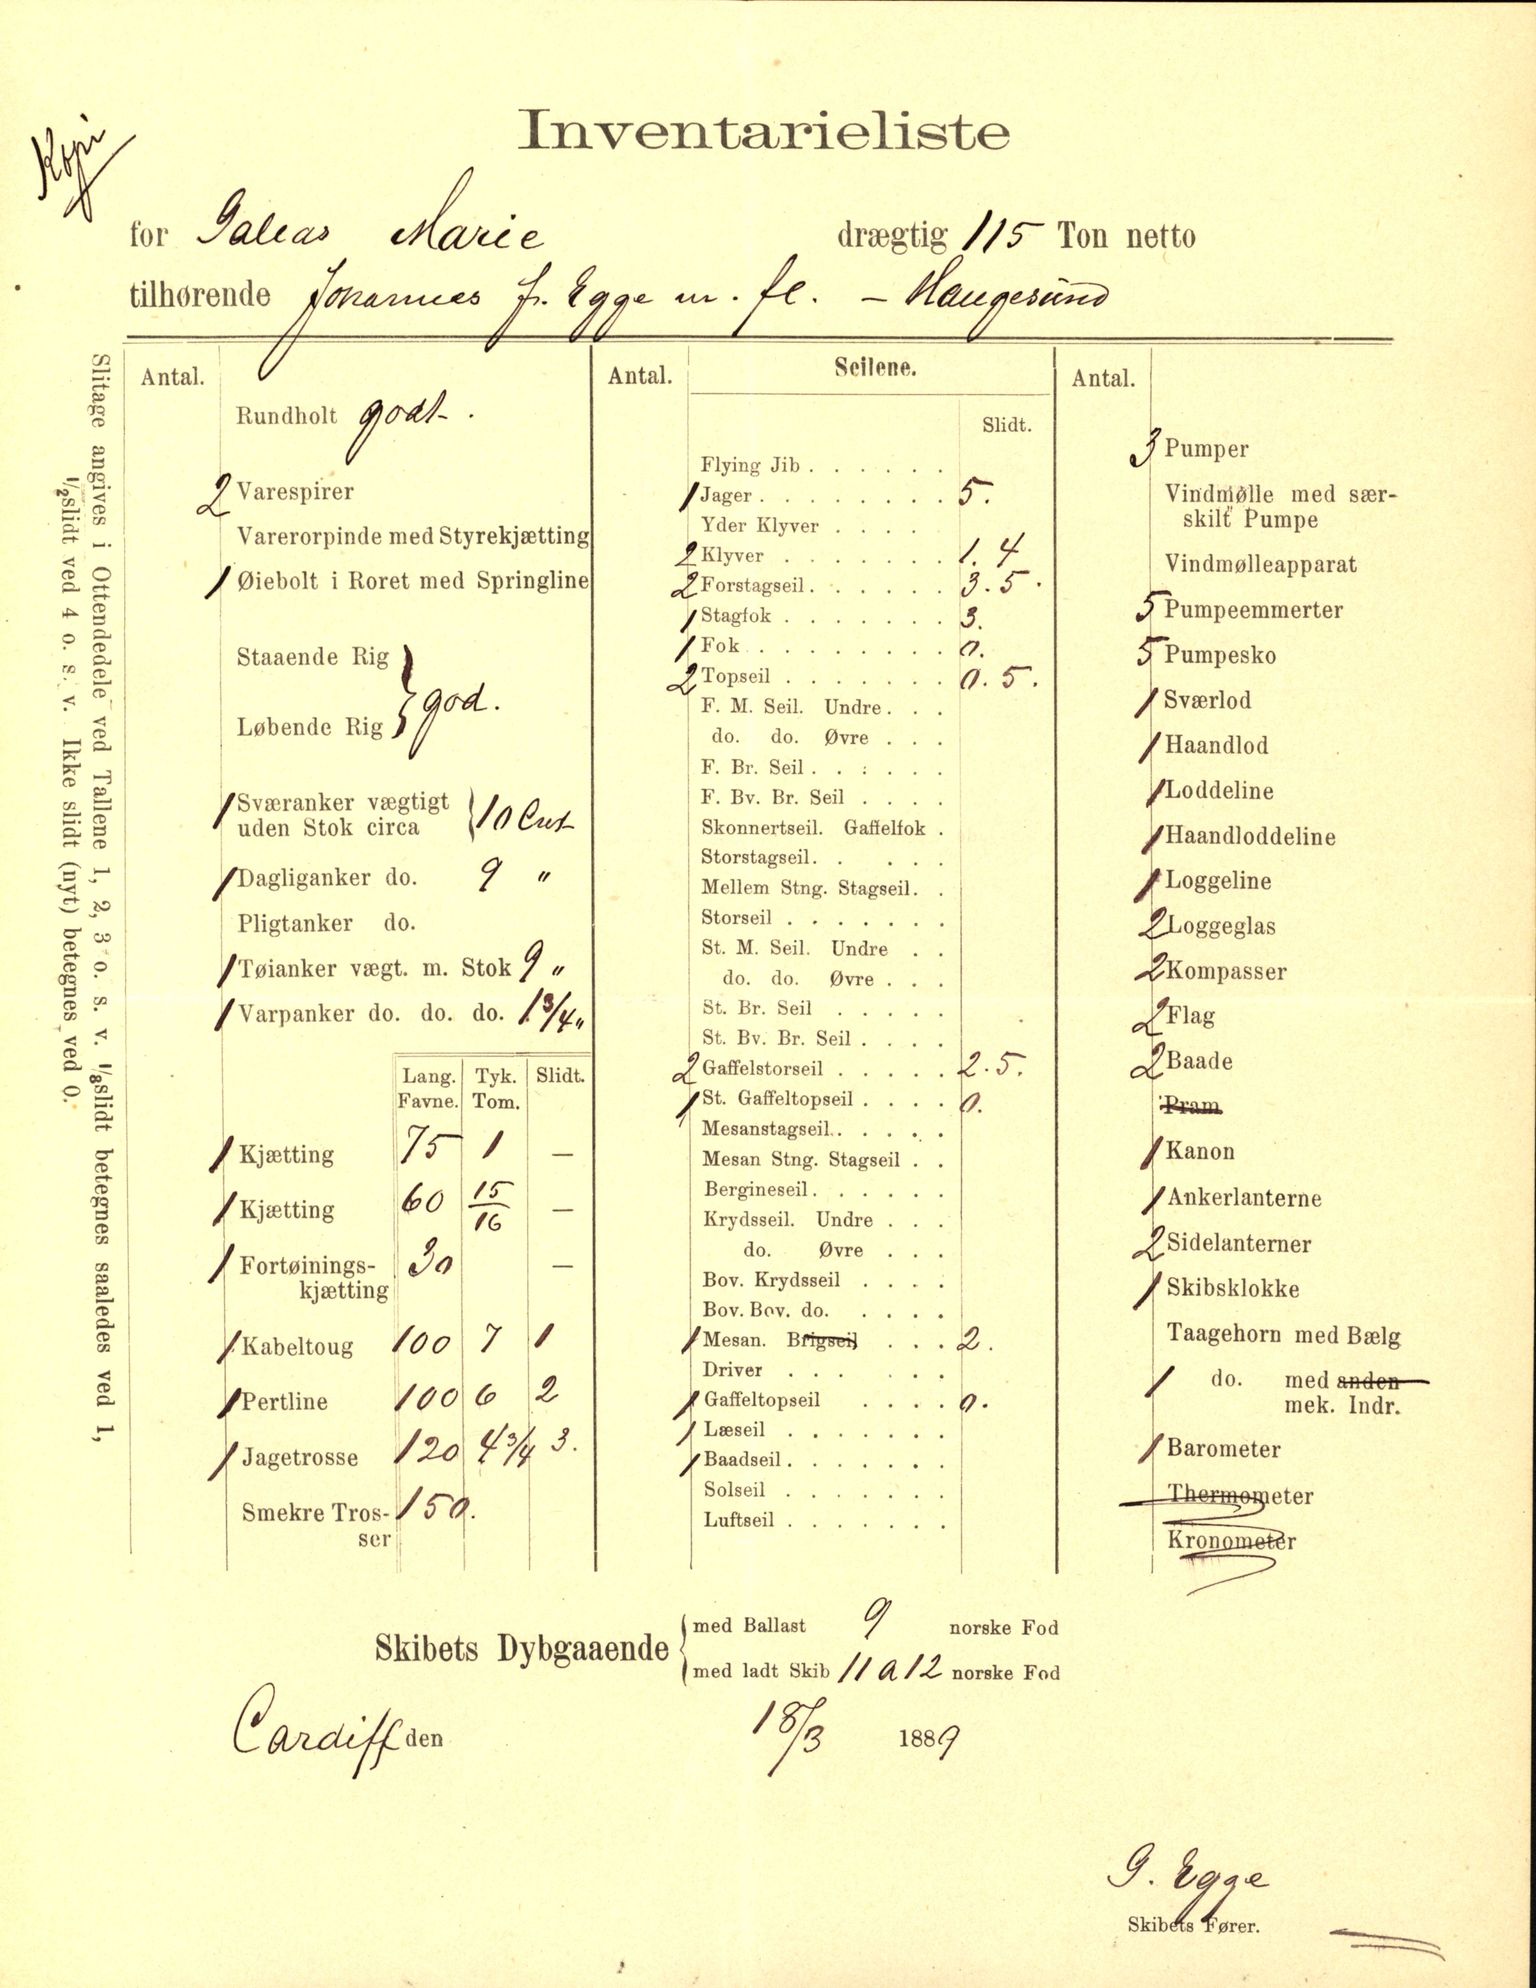 Kopi
Inventarieliste
for Galeas Marie drægtig 115 Ton netto
tilhørende Johannes J. Egge m. fl. – Haugesund
Slitage angives i Ottendedele ved Tallene 1, 2, 3 o. s. v. 1/8 slidt betegnes saaledes ved 1,
1/2 slidt ved 4 o. s. v. Ikke slidt (nyt) betegnes ved 0.
Antal.
Rundholt godt.
2 Varespirer
Varerorpinde med Styrekjætting
1 Øiebolt i Roret med Springline
Staaende Rig } god.
Løbende Rig
1 Sværanker vægtigt
uden Stok circa } 10 Cwt
1 Dagliganker do. 9 "
Pligtanker do.
1 Tøianker vægt. m. Stok 9 "
1 Varpanker do. do. do. 1 3/4 "
Lang. Tyk. Slidt.
Favne. Tom.
1 Kjætting 75 1 —
1 Kjætting 60 15/16 —
1 Fortøinings- 30 —
kjætting
1 Kabeltoug 100 7 1
1 Pertline 100 6 2
1 Jagetrosse 120 4 3/4 3.
Smekre Tros- 150.
ser
Antal. Seilene.
Slidt.
Flying Jib . . . . . .
1 Jager . . . . . . . . 5.
Yder Klyver . . . .
2 Klyver . . . . . . . 1. 4
2 Forstagseil . . . . . . 3. 5.
1 Stagfok . . . . . . . 3.
1 Fok . . . . . . . . 0.
2 Topseil . . . . . . . 0. 5.
F. M. Seil. Undre . . .
do. do. Øvre . . .
F. Br. Seil . . . . . .
F. Bv. Br. Seil . . . .
Skonnertseil. Gaffelfok .
Storstagseil . . . . .
Mellem Stng. Stagseil. .
Storseil . . . . . . .
St. M. Seil. Undre . .
do. do. Øvre . . .
St. Br. Seil . . . . .
St. Bv. Br. Seil . . . .
2 Gaffelstorseil . . . . . 2. 5.
1 St. Gaffeltopseil . . . . 0.
Mesanstagseil . . . . .
Mesan Stng. Stagseil . .
Bergineseil . . . . . .
Krydsseil. Undre . . .
do. Øvre . . .
Bov. Krydsseil . . . .
Bov. Bov. do. . . . .
1 Mesan. Brigseil . . . 2.
Driver . . . . . .
1 Gaffeltopseil . . . . 0.
1 Læseil . . . . . . .
1 Baadseil . . . . . . .
Solseil . . . . . . .
Luftseil . . . . . . .
Antal.
3 Pumper
Vindmølle med sær-
skilt Pumpe
Vindmølleapparat
5 Pumpeemmerter
5 Pumpesko
1 Sværlod
1 Haandlod
1 Loddeline
1 Haandloddeline
1 Loggeline
2 Loggeglas
2 Kompasser
2 Flag
2 Baade
Pram
1 Kanon
1 Ankerlanterne
2 Sidelanterner
1 Skibsklokke
Taagehorn med Bælg
1 do. med anden
mek. Indr.
1 Barometer
Thermometer
Kronometer
Skibets Dybgaaende { med Ballast 9 norske Fod
med ladt Skib 11 a 12 norske Fod
Cardiff den 18/3 1889
G. Egge
Skibets Fører.